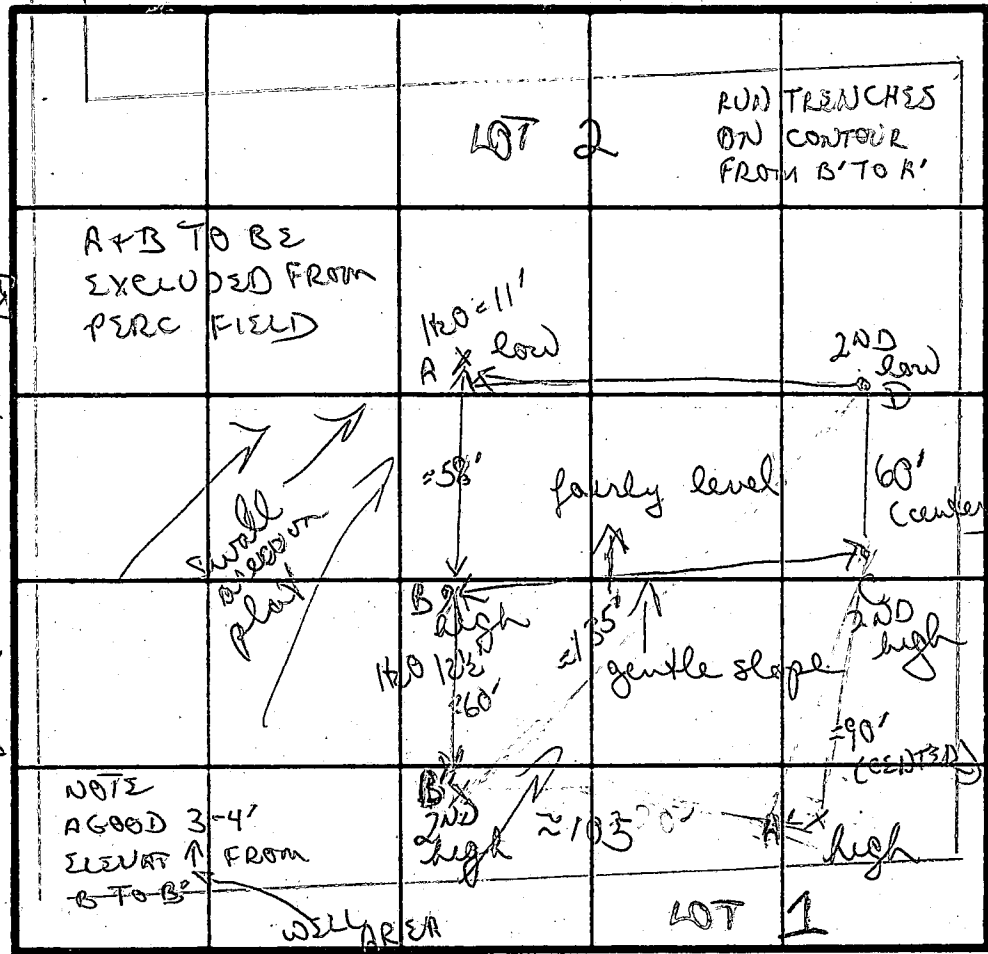 LOT 2
RUN TRENCHES
ON CONTOUR
FROM B' TO A'
A + B TO BE
EXCLUDED FROM
PERC FIELD
H2O = 11'
A
low
2ND
low
D
≈58'
fairly level
60'
(center
swale
area on
plat
B
high
H2O 12½'
≈60'
≈135'
gentle slope
C
2ND
high
≈90'
(CENTER)
B'
2ND
high
≈105
A'
high
NOTE
A GOOD 3-4'
ELEVAT ↑ FROM
B TO B'
WELL AREA
LOT 1